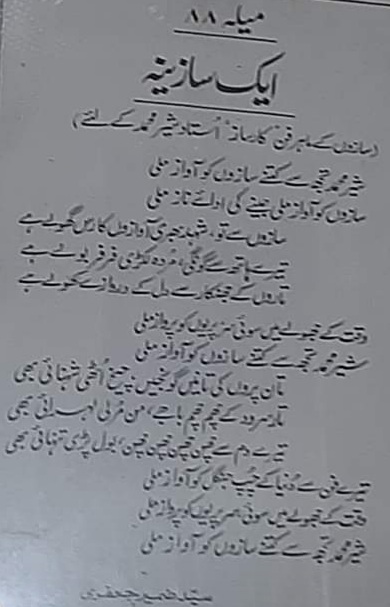 میلہ ۸۸
ایک سازینہ
(سازوں کے ماہر فن "کارساز" اُستاد شیر محمد کے لئے)
شیر محمد تجھ سے کتنے سازوں کو آواز ملی
سازوں کو آواز ملی جینے کی ادائے ناز ملی
سازوں سے تو، شہد بھری آوازوں کا رس گھولے ہے
تیرے ہاتھ سے گونگی، مُردہ لکڑی فرفر بولے ہے
تاروں کے چھنکار سے دل کے دروازے کھولے ہے
وقت کے جھولے میں سوئی سر پریوں کو پرواز ملی
شیر محمد تجھ سے کتنے سازوں کو آواز ملی
تان پروں کی تانیں گونجیں چیخ اُٹھی شہنائی بھی
تار سرود کے چھم چھم باجے، من مُرلی لہرائی بھی
تیرے دم سے چھن چھن چھن چھن، بول پڑی تنہائی بھی
تیرے فن سے دُنیا کے چُپ جنگل کو آواز ملی
وقت کے جھولے میں سوئی سر پریوں کو پرواز ملی
شیر محمد تجھ سے کتنے سازوں کو آواز ملی
سید ضمیر جعفری